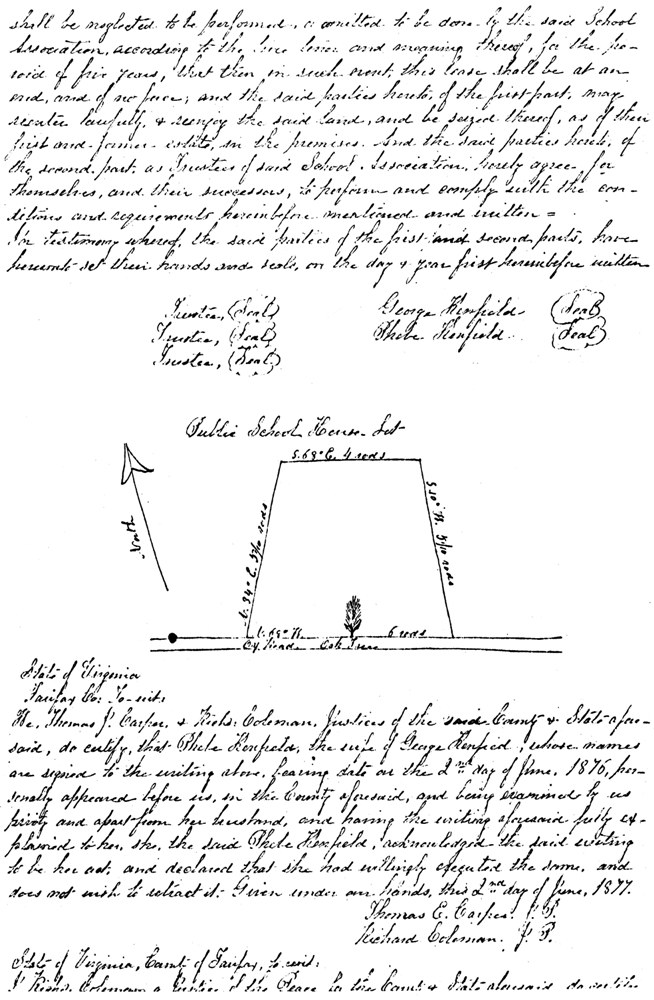 shall be neglected to be performed, or omitted to be done by the said School
Association, according to the true tenor and meaning thereof, for the pe-
riod of five years, that then in such event, this lease shall be at an
end, and of no force; and the said parties hereto, of the first part, may
reenter lawfully, & reenjoy the said land, and be seized thereof, as of their
first and former estate, in the premises. And the said parties hereto, of
the second part, as Trustees of said School Association, hereby agree for
themselves, and their successors, to perform and comply with the con-
ditions and requirements hereinbefore mentioned and written =
In testimony whereof, the said parties of the first and second parts, have
hereunto set their hands and seals, on the day & year first hereinbefore written
Trustee, (Seal) George Kenfield (Seal)
Trustee, (Seal) Phebe Kenfield (Seal)
Trustee, (Seal)
Public School House Lot
S. 68° E. 4 rods
North
34° E. rods
S 10° W. rods
68° W. 6 rods
Road Oak Tree
State of Virginia
Fairfax Co: To-wit:
We, Thomas E. Carper, & Richd. Coleman, Justices of the said County & State afore-
said, do certify, that Phebe Kenfield, the wife of George Kenfield, whose names
are signed to the writing above, bearing date on the 2nd day of June, 1876, per-
sonally appeared before us, in the County aforesaid, and being examined by us
privily and apart from her husband, and having the writing aforesaid fully ex-
plained to her, she, the said Phebe Kenfield, acknowledged the said writing
to be her act, and declared that she had willingly executed the same, and
does not wish to retract it. Given under our hands, this 2nd day of June, 1877.
Thomas E. Carper. J. P.
Richard Coleman. J. P.
State of Virginia, County of Fairfax, to-wit:
I Richd. Coleman a Justice of the Peace for the County & State aforesaid do certify